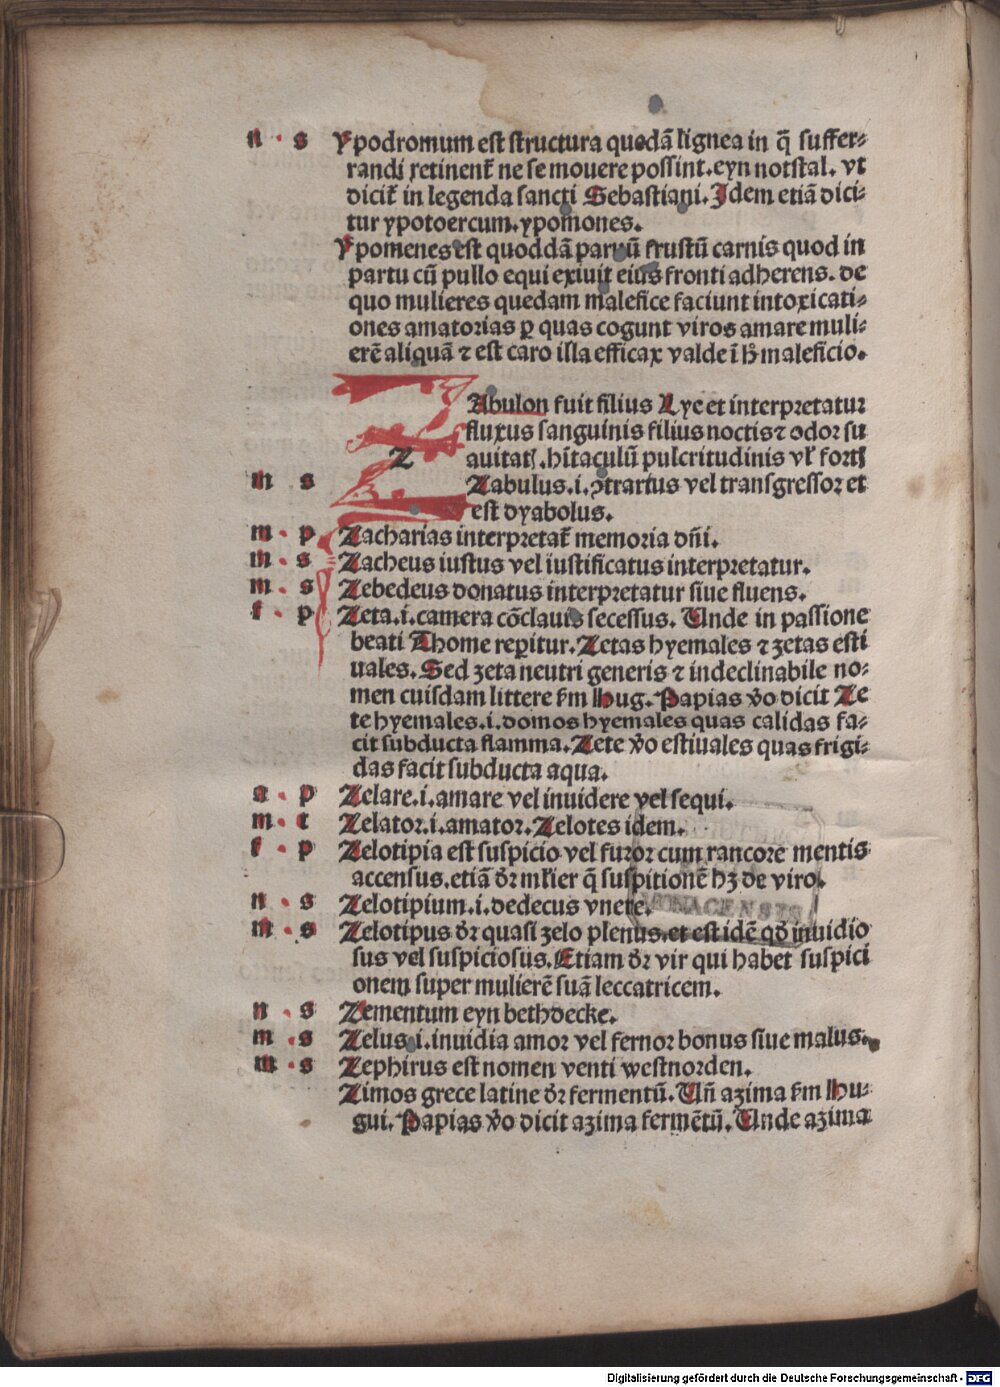 n · s Ypodromum est structura quedā lignea in q̄ suffer⸗
randi retinent̄ ne se mouere possint. eyn notstal. vt
dicit̄ in legenda sancti Sebastiani. Idem etiā dici⸗
tur ypotoercum. ypomones.
Ypomenes est quoddā paruū frustū carnis quod in
partu cū pullo equi exiuit eius fronti adherens. de
quo mulieres quedam malefice faciunt intoxicati⸗
ones amatorias ꝑ quas cogunt viros amare muli⸗
erē aliquā ⁊ est caro illa efficax valde ī hͦ maleficio.
Z Abulon fuit filius Lye et interpretatur
fluxus sanguinis filius noctis ⁊ odor su
auitatꝭ. hītaculū pulcritudinis vł fortꝭ
m s Zabulus. i. ↄ̄trarius vel transgressor et
est dyabolus.
m · p Zacharias interpretat̄ memoria dn̄i.
m · s Zacheus iustus vel iustificatus interpretatur.
m · s Zebedeus donatus interpretatur siue fluens.
f · p Zeta. i. camera cōclauis secessus. Unde in passione
beati Thome reperitur. Zetas hyemales ⁊ zetas esti
uales. Sed zeta neutri generis ⁊ indeclinabile no⸗
men cuisdam littere ẜm Hug. Papias ṽo dicit Ze
te hyemales. i. domos hyemales quas calidas fa⸗
cit subducta flamma. Zete ṽo estiuales quas frigi⸗
das facit subducta aqua.
a · p Zelare. i. amare vel inuidere vel sequi.
m · t Zelator. i. amator. Zelotes idem.
f · p Zelotipia est suspicio vel furor cum rancore mentis
accensus. etiā dr̄ mlier q̄ suspitionē hꝫ de viro.
n · s Zelotipium. i. dedecus vnere.
m · s Zelotipus dr̄ quasi zelo plenus. et est idē qd̄ inuidio
sus vel suspiciosus. Etiam dr̄ vir qui habet suspici
onem super mulierē suā leccatricem.
n · s Zementum eyn bethdecke.
m · s Zelus. i. inuidia amor vel fernor bonus siue malus.
m · s Zephirus est nomen venti westnorden.
Zimos grece latine dr̄ fermentū. Un̄ azima ẜm Hu⸗
gui. Papias ṽo dicit azima fermētū. Unde azima
MONACENSIS
Digitalisierung gefördert durch die Deutsche Forschungsgemeinschaft - DFG